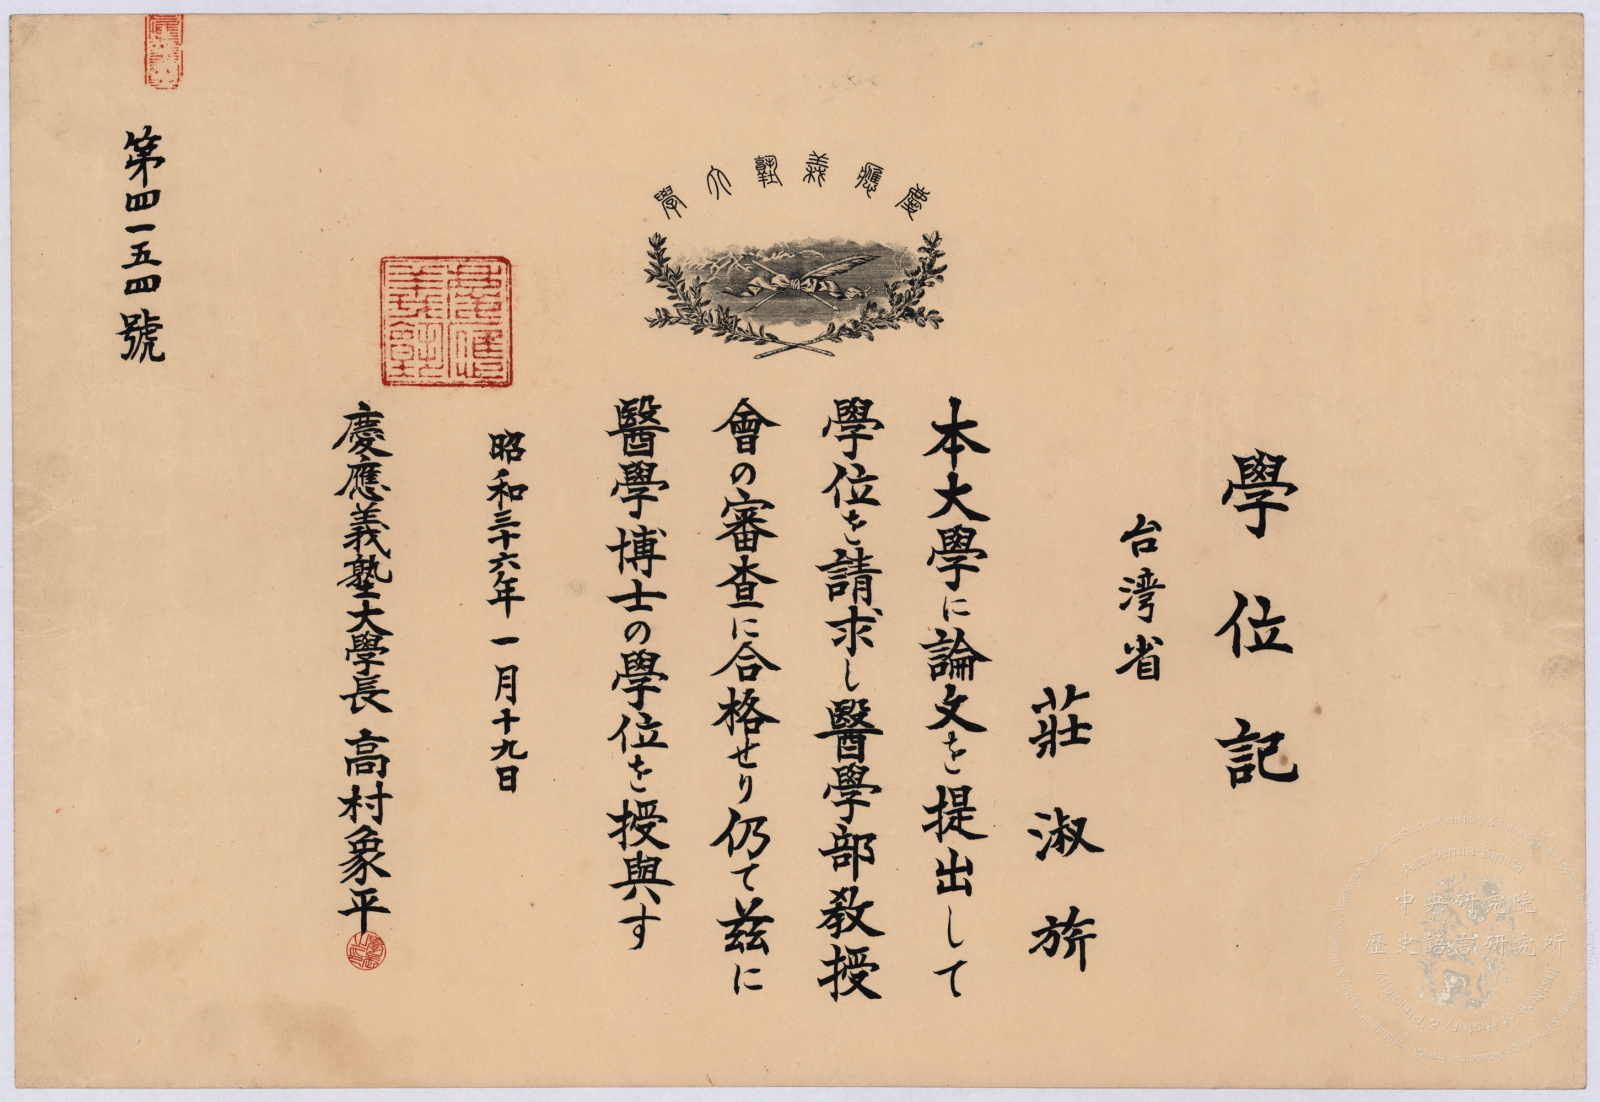 慶應義塾大學
學位記
台湾省
莊淑旂
本大學に論文を提出して
學位を請求し醫學部教授
會の審査に合格せり仍て茲に
醫學博士の學位を授與す
昭和三十六年一月十九日
慶應義塾大學長 高村象平
第四一五四號
慶應義塾
Academia Sinica
中央研究院
歷史語言研究所
Institute of History & Philology